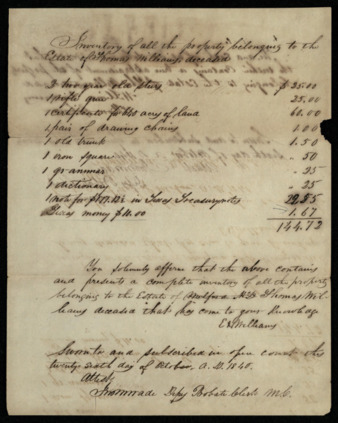 Inventory of all the property belonging to the
Estate of Thomas Williams deceased
2 two year olde Stears $ 25.00
1 rifle gun 25.00
1 certificate for 640 acres of land 60.00
1 pair of drawing chains 1.00
1 old trunk 1.50
1 iron square - 50
1 grammar - 25
1 dictionary - 25
1 note for in Texas Treasury notes
Texas money $ 10.00 1.67
144.72
You solemnly affirm that the above contains
and presents a complete inventory of all the property
belonging to the Estate of Thomas Wil-
liams deceased that has come to your knowledge
Williams
Sworn to and subscribed in open court this
twenty sixth day of October, A.D. 1840.
Attest,
Depy Probate Clerk M.C.